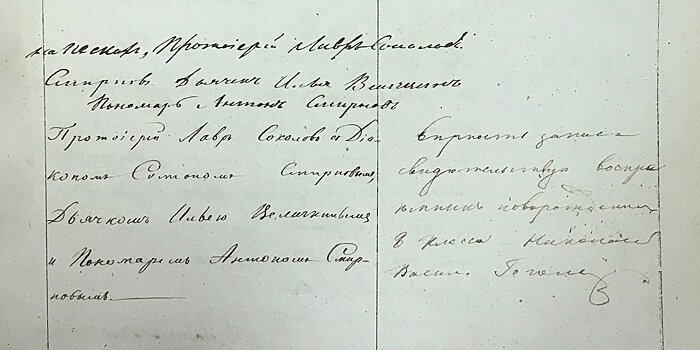 на Пескахъ, Протоіерей Лавръ Соколовъ.
Смирновъ. Дьячекъ Илья
Пономарь Антонъ Смирновъ
Протоіерей Лавръ Соколовъ съ Діа-
кономъ Смирновымъ,
Дьячкомъ Ильею
и Пономаремъ Антономъ Смир-
новымъ.
Верность записи
свидѣтельствую воспри
новорожденна
8 класса Николай
Васил. Гоголь